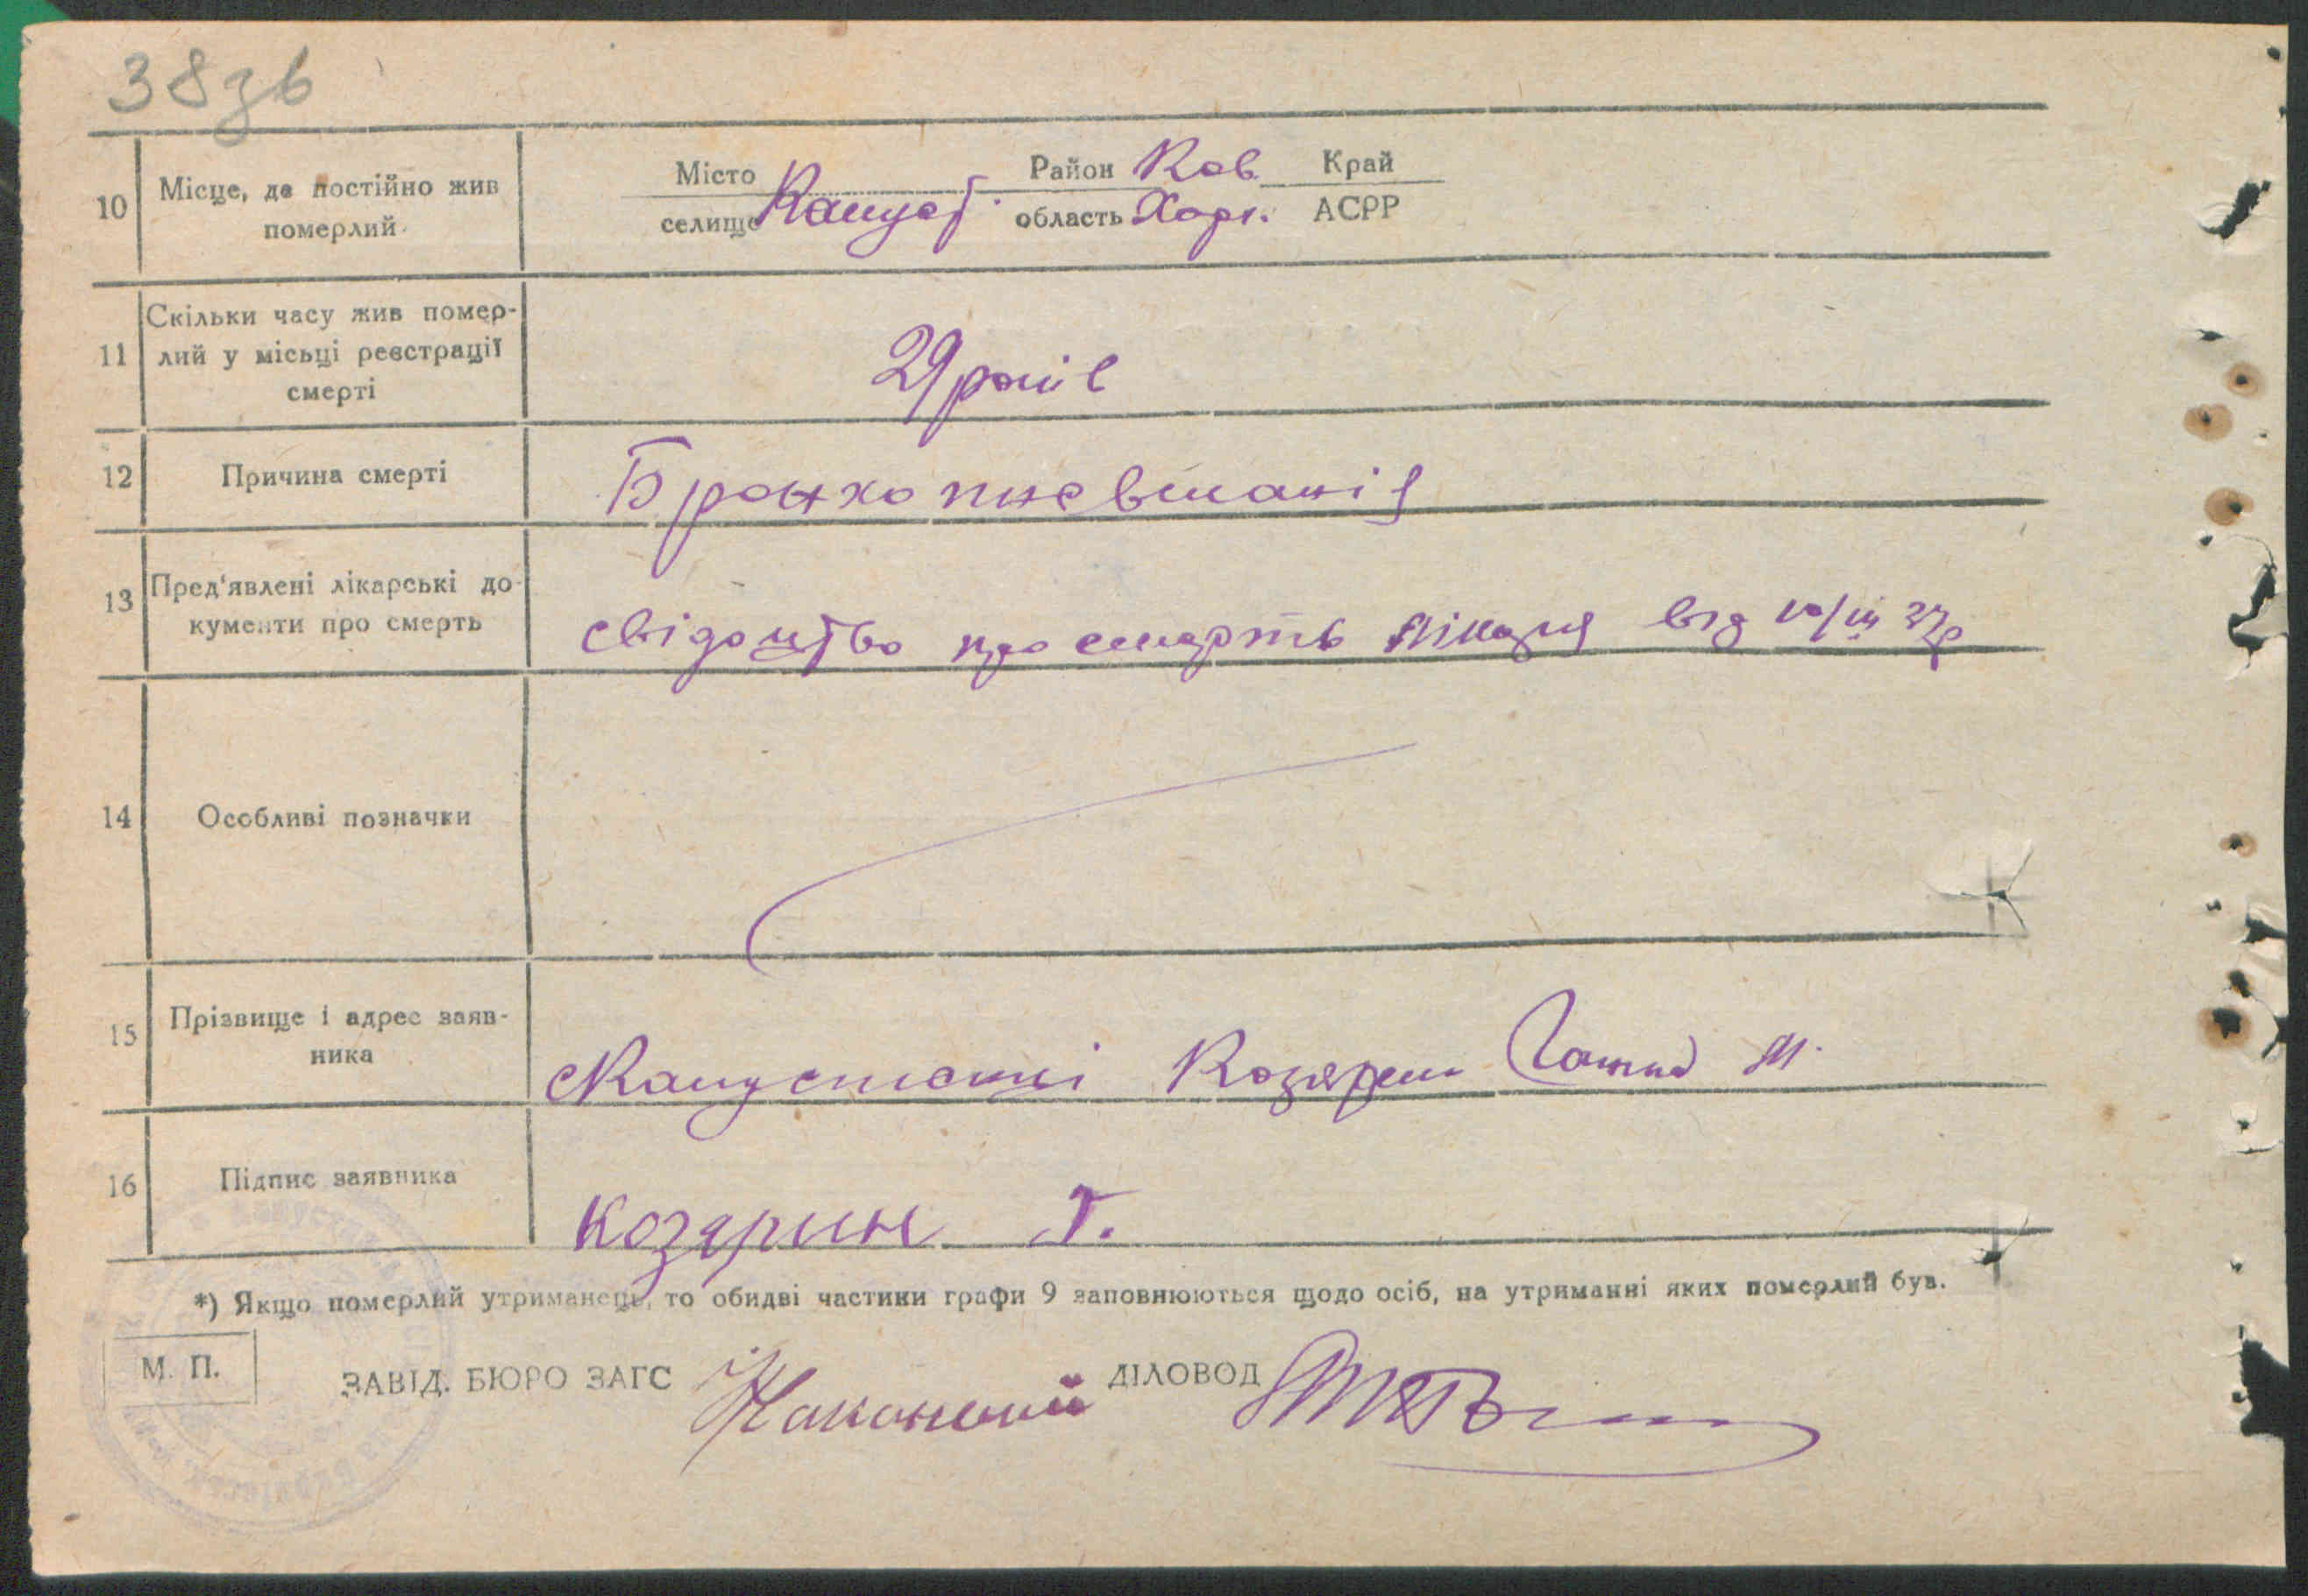 38зв
10 Місце, де постійно жив померлий
Місто Район Ков. Край
селище Капуст. область Харк. АСРР
11 Скільки часу жив помер-
лий у місьці реєстрації
смерті
29 років
12 Причина смерті Бронхопневманія
13 Пред'явлені лікарські до-
кументи про смерть
свідоцтво про смерть лікаря від 10/III 37р
14 Особливі позначки
15 Прізвище і адрес заяв-
ника
Козярин М.
16 Підпис заявника
козярин Г.
*) Якщо померлий утриманець, то обидві частини графи 9 заповнюються щодо осіб, на утриманні яких померлий був.
М. П. ЗАВІД. БЮРО ЗАГС ДІЛОВОД